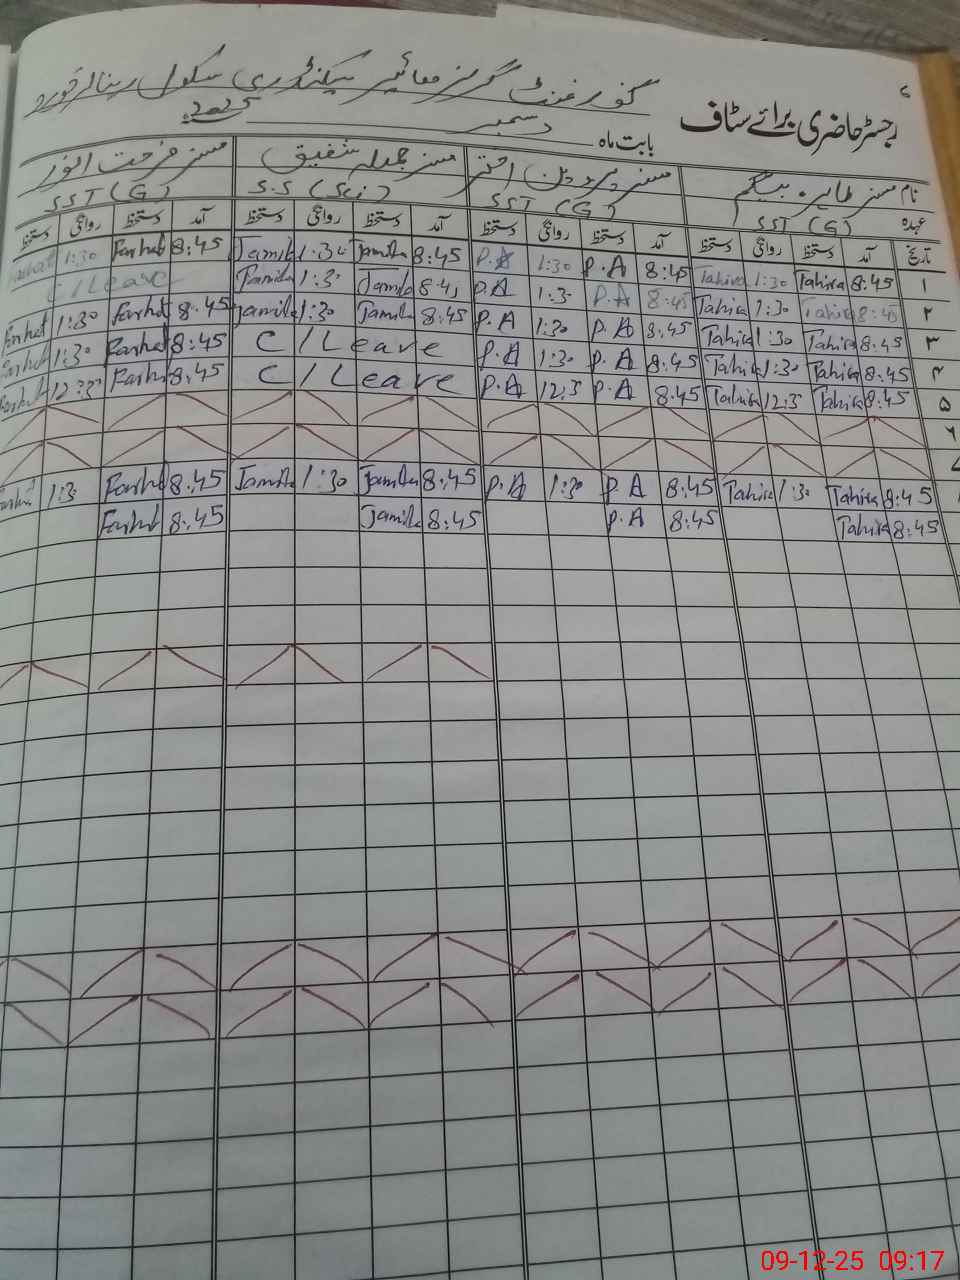 گورنمنٹ گرلز ہائیر سیکنڈری سکول رینالہ خورد
رجسٹر حاضری برائے سٹاف
بابت ماہ دسمبر 2025
نام مسز طاہرہ بیگم مسز پروین اختر مسز جمیلہ شفیق مسز فرحت انور
عہدہ SST (G) SST (G) S.S (Sci) SST (G)
تاریخ آمد دستخط روانگی دستخط آمد دستخط روانگی دستخط آمد دستخط روانگی دستخط آمد دستخط روانگی دستخط
۱ 8:45 Tahira 1:30 Tahira 8:45 P.A 1:30 P.A 8:45 Jamila 1:30 Jamila 8:45 Farhat 1:30 Farhat
۲ 8:45 Tahira 1:30 Tahira 8:45 P.A 1:30 P.A 8:45 Jamila 1:30 Jamila C/Leave
۳ 8:45 Tahira 1:30 Tahira 8:45 P.A 1:30 P.A 8:45 Jamila 1:30 Jamila 8:45 Farhat 1:30 Farhat
۴ 8:45 Tahira 1:30 Tahira 8:45 P.A 1:30 P.A C/Leave 8:45 Farhat 1:30 Farhat
۵ 8:45 Tahira 12:3 Tahira 8:45 P.A 12:3 P.A C/Leave 8:45 Farhat Farhat
۶
8:45 Tahira 1:30 Tahira 8:45 P.A 1:30 P.A 8:45 Jamila 1:30 Jamila 8:45 Farhat 1:3 Farhat
8:45 Tahira 8:45 P.A 8:45 Jamila 8:45 Farhat
09-12-25 09:17